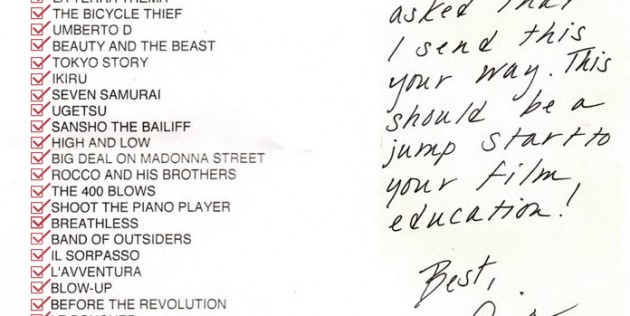 THE BICYCLE THIEF
UMBERTO D
BEAUTY AND THE BEAST
TOKYO STORY
IKIRU
SEVEN SAMURAI
UGETSU
SANSHO THE BAILIFF
HIGH AND LOW
BIG DEAL ON MADONNA STREET
ROCCO AND HIS BROTHERS
THE 400 BLOWS
SHOOT THE PIANO PLAYER
BREATHLESS
BAND OF OUTSIDERS
IL SORPASSO
L'AVVENTURA
BLOW-UP
BEFORE THE REVOLUTION
asked that
I send this
your way. This
should be a
jump start to
your film
education!
Best,